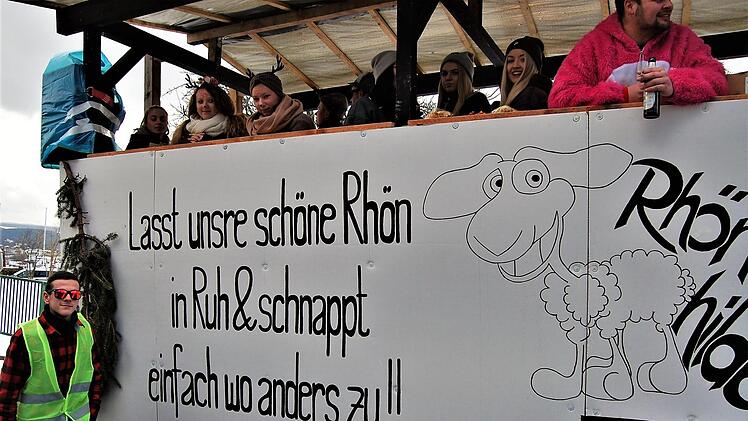 Lasst unsre schöne Rhön
in Ruh & schnappt
einfach wo anders zu!!